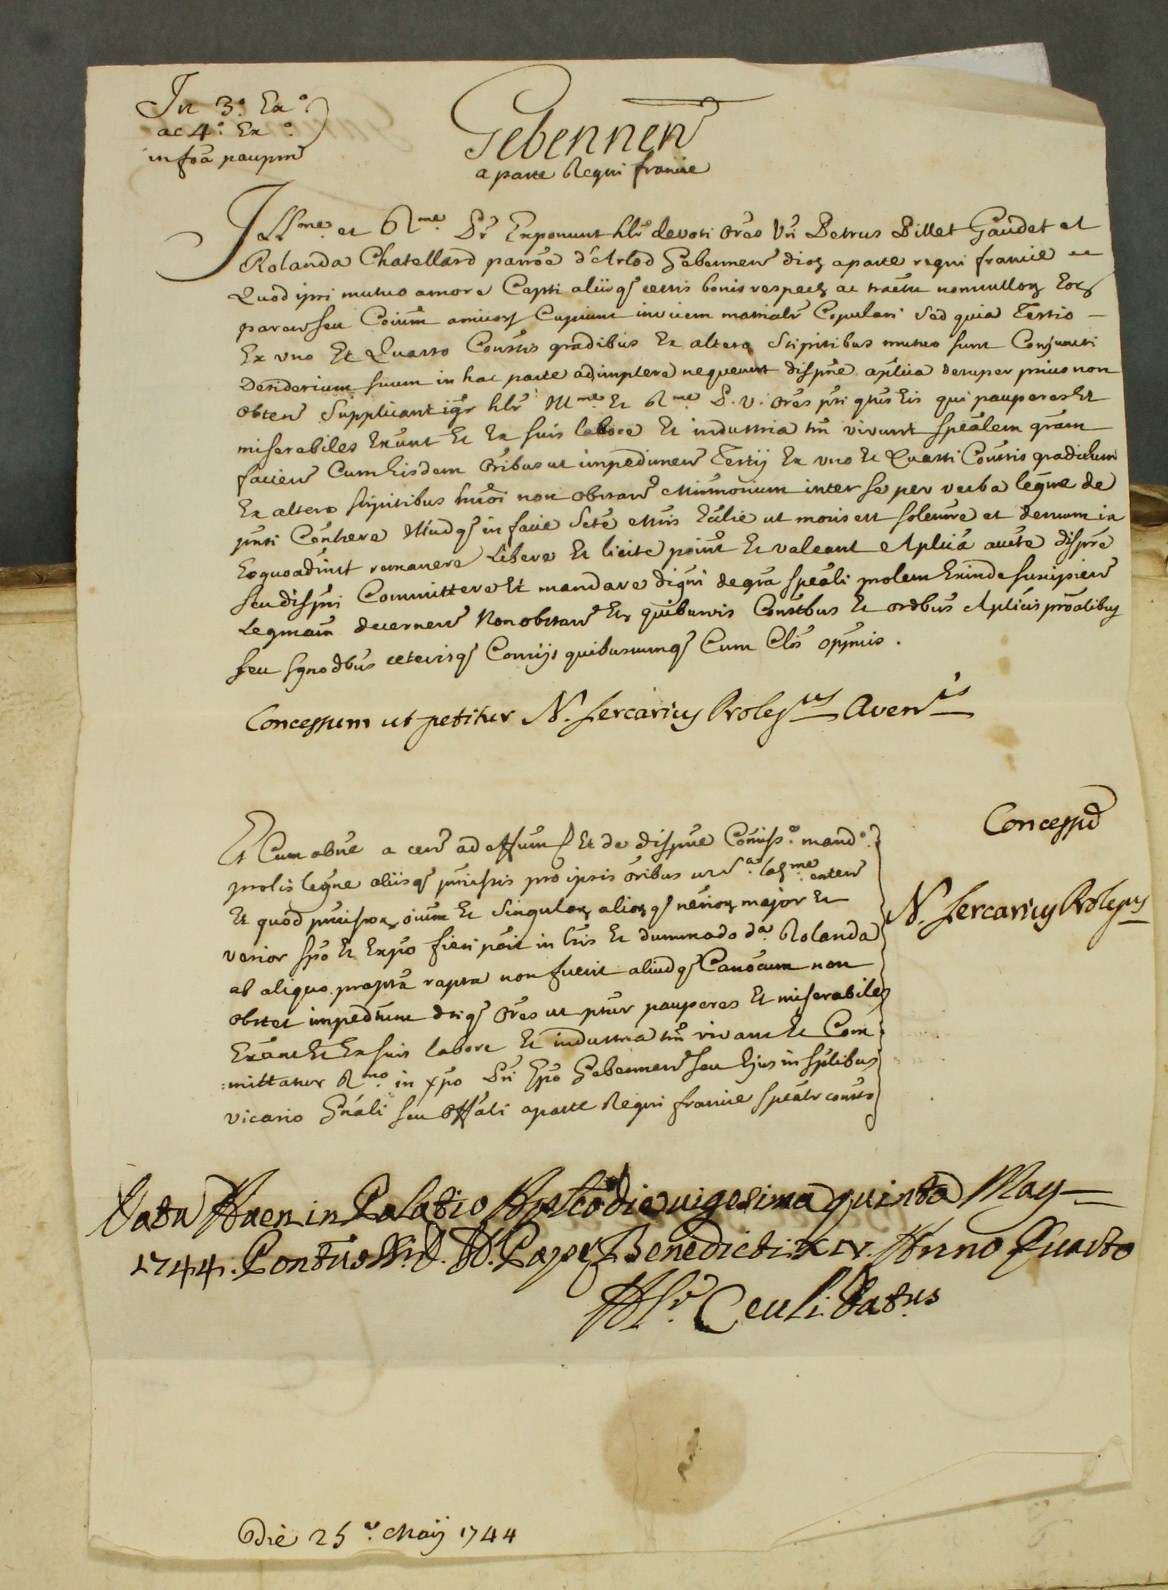 In 3.° Ex.°
ac 4.° Ex.°
in for̃a paupm̃
Gebennen̄
a parte Regni franciæ
Ill.me et R.me Dñe Exponunt hlr̃ devoti Or̃es Vr̃i Petrus Billet Gaudet et
Rolanda Chatellard par̃ræ d'Arlod Gebennen̄ dioç a parte regni franciæ
Quod ipsi mutuo amore Capti aliisq̃ certis bonis respect; ac tractu nonnulloꝝ
paren̄ seu Coium̃ amicoꝝ Cupiunt invicem mat̃rialr̃ Copulari Sed quia Tertio
Ex uno Et Quarto Consñis gradibus Ex altero Stipitibus mutuo sunt Conjuncti
Desiderium suum in hac parte adimplere nequeunt dispñe aplica desuper prius non
obten̄ Supplicant igr̃ hlr̃ Ill.me et R.me D. V. Or̃es pr̃i qtũs Eis qui pauperes Et
miserabiles Exĩunt Et Ex suis labore Et industria tm̃ vivunt spealem gram̃
facien̄ Cum Eisdem Or̃ibus ut impedimen̄ Tertij Ex uno et Quarti Consñis gradibus
Ex altero stipitibus hm̃oi non obstan̄ Mr̃imonium inter se per verba legm̃e de
pñti Contr̃here Illudq̃ in facie Sctæ Mr̃is Ecclie ut moris est solemr̃e et demum in
Eo quoadvix̃t remanere Libere Et licite possint Et valeant Aplica aucte dispñre
seu dispñri Committere Et mandare digni de gra speali prolem Exinde suscipien̄
Legm̃am decernen̄ Non obstan̄ Et quibusvis Constbus Et ordbus Aplicis prõalibus
seu synodbus ceterisq̃ Conr̃ijs quibuscumq̃ Cum Cl̃is opñis.
Concessum ut petitur N. Lercarius Proleg.us Aven.is
Et Cum absñe a cen̄ ad effum̃ Et de dispñe Comiss.° mand.°
prolis legm̃e aliisq̃ pmissis pro ipsis or̃ibus
Et quod pmissoꝝ oium̃ Et Singuloꝝ alioꝝq̃ nẽrioꝝ major Et
verior spõ Et Expõ fieri possit in lr̃is Et dummodo d.a Rolanda
ab aliquo propt̃a rapta non fuerit aliudq̃ Canõcum non
obstet impedtum̃ dtiq̃ Or̃es ut pr̃tur pauperes Et miserabiles
Exĩant Et Ex suis labore Et industria tm̃ vivant Et Com
mittatur R.mo in xpõ Dño Epõ Gebennen̄ seu Ejus in sp̃libus
vicario Gñali seu Offali a parte Regni franciæ spealr̃ const̃o
Concessũ
N. Lercarius Prolegus
Datũ Aven. in Palatio Apłico die vigesima quinta May
1744. Pontus SS. D. N. Papæ Benedicti XIV. Anno Quarto
Ceuli Datus
Die 25.a Maij 1744